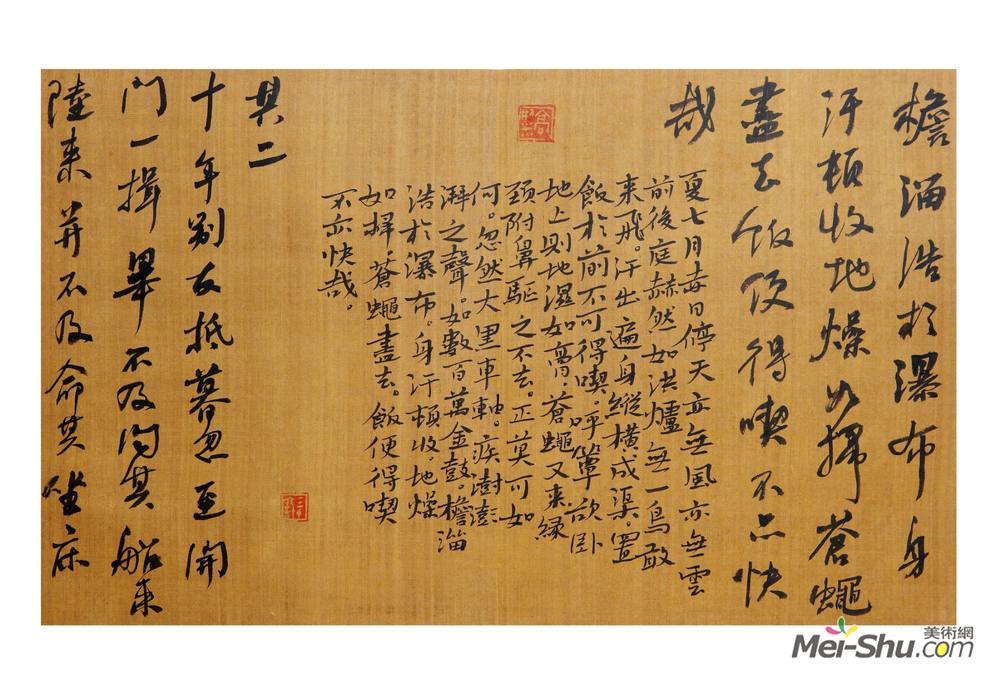 檐溜浩於瀑布身
汗頓收地燥如掃蒼蠅
盡去飯便得喫不亦快
哉
夏七月赤日停天亦無風亦無雲
前後庭赫然如洪爐無一鳥敢
來飛。汗出遍身縱橫成渠。置
飯於前不可得喫。呼簟欲臥
地上則地濕如膏。蒼蠅又來緣
頸附鼻驅之不去。正莫可如
何。忽然大黑車軸。疾澍澎
湃之聲。如數百萬金鼓。檐溜
浩於瀑布。身汗頓收。地燥
如掃。蒼蠅盡去。飯便得喫
不亦快哉。
其二
十年別友抵暮忽至開
門一揖畢不及問其船來
陸來并不及命其坐床
美術網
Mei-Shu.com